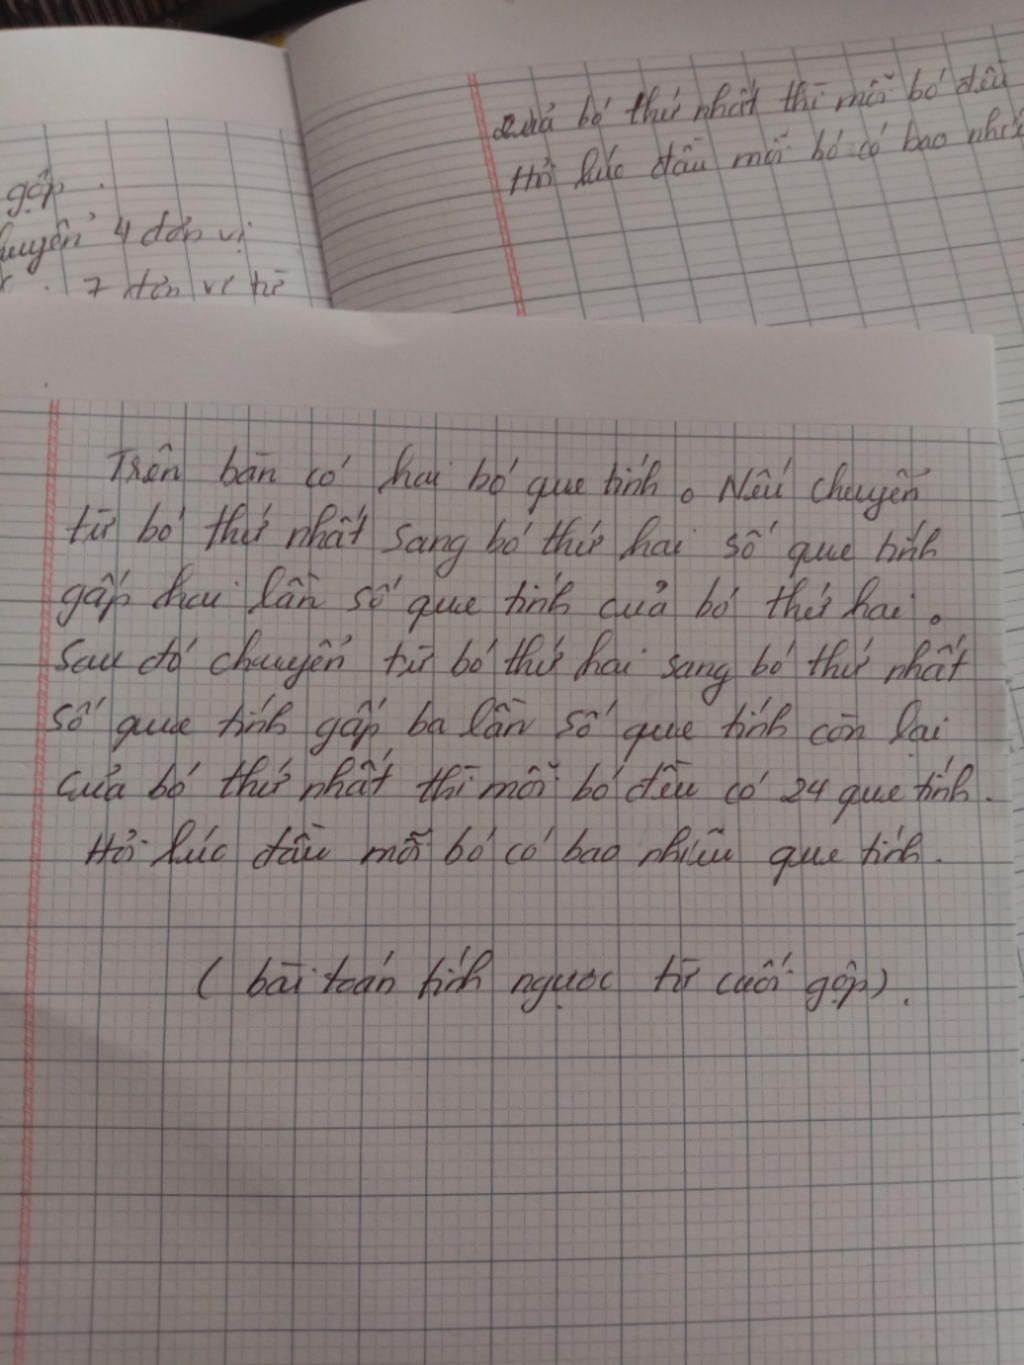 gộp.
chuyển 4 đơn vị
7 đơn vị từ
của bó thứ nhất thì mỗi bó đều
Hỏi lúc đầu mỗi bó có bao nhiê
Trên bàn có hai bó que tính. Nếu chuyển
từ bó thứ nhất sang bó thứ hai số que tính
gấp hai lần số que tính của bó thứ hai.
Sau đó chuyển từ bó thứ hai sang bó thứ nhất
số que tính gấp ba lần số que tính còn lại
của bó thứ nhất thì mỗi bó đều có 24 que tính.
Hỏi lúc đầu mỗi bó có bao nhiêu que tính.
(bài toán tính ngược từ cuối gộp).